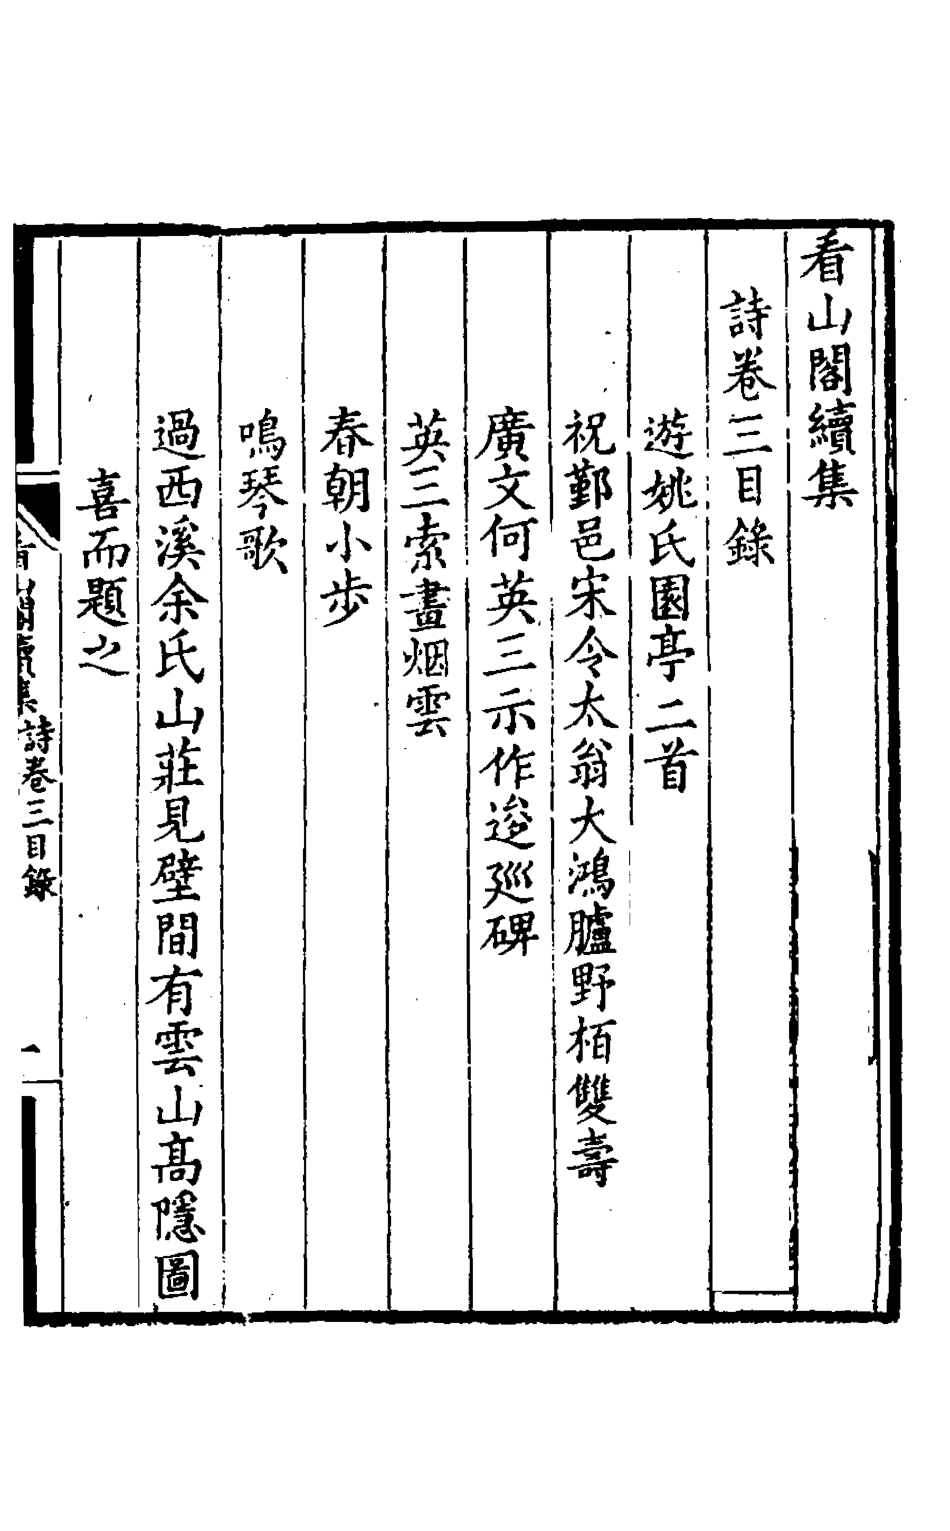 看山閣續集
詩卷三目錄
遊姚氏園亭二首
祝鄞邑宋令太翁大鴻臚野栢雙壽
廣文何英三示作逡廵碑
英三索畫烟雲
春朝小步
鳴琴歌
過西溪余氏山莊見壁間有雲山高隱圖
喜而題之
看山閣續集 詩卷三目錄 一